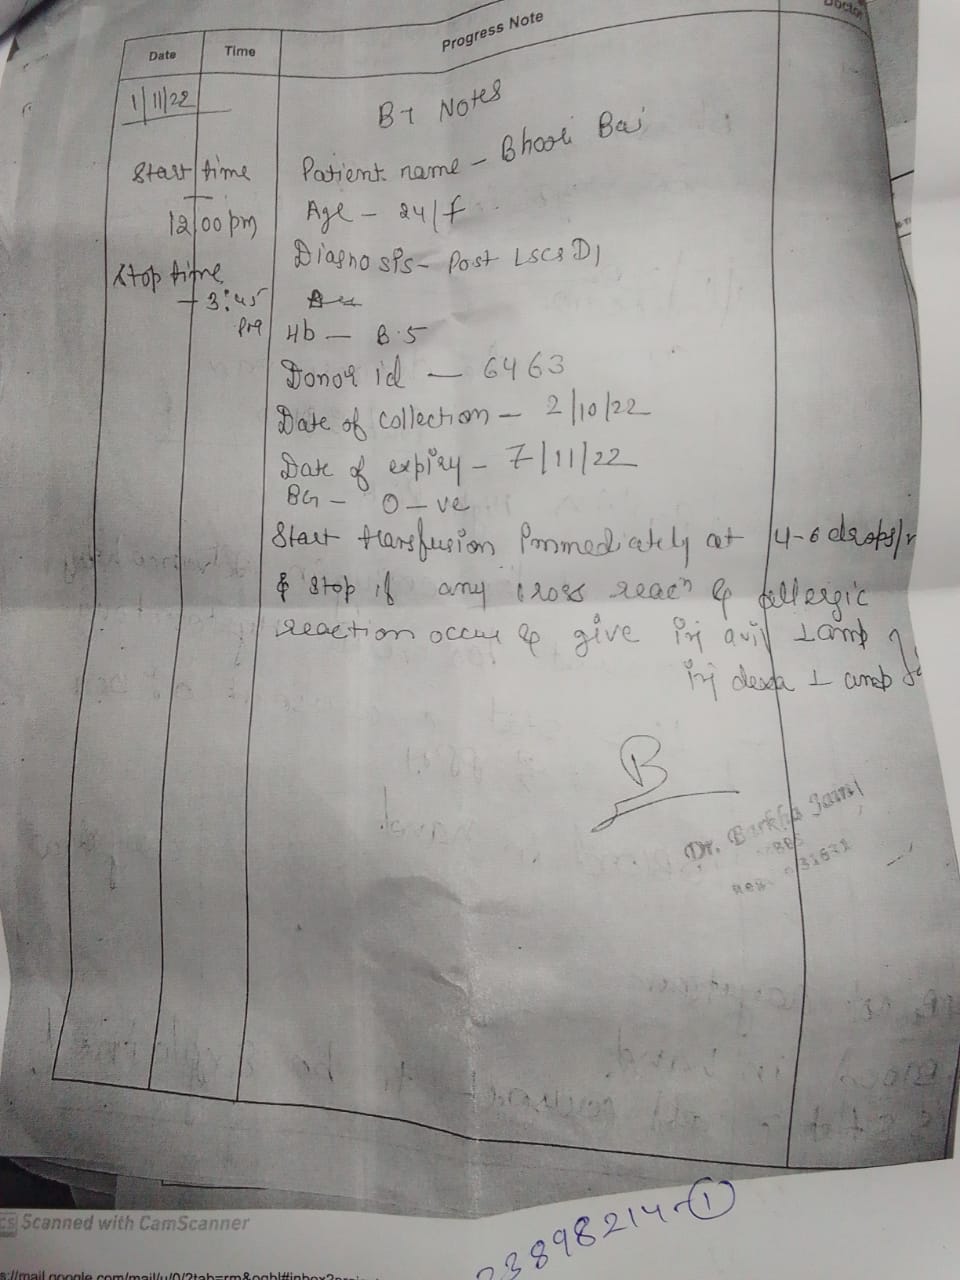 Date Time Progress Note Doctor
1/11/22
BT Notes
Start time Patient name - Bhooli Bai
12:00 pm Age - 24/f
Diagnosis - Post LSCS D1
Stop time
- 3:45
pm
Hb - 8.5
Donor id - 6463
Date of collection - 2/10/22
Date of expiry - 7/11/22
BG - O -ve
Start transfusion immediately at 4-6 drops/
& stop if any cross reacn & allergic
reaction occur & give inj avil 1 amp
inj dexa 1 amp
B
Dr. Barkha Jain
BBS
CS Scanned with CamScanner
23898214-1
s://mail.google.com/mail/u/0/?tab=rm&ogbl#inbox?